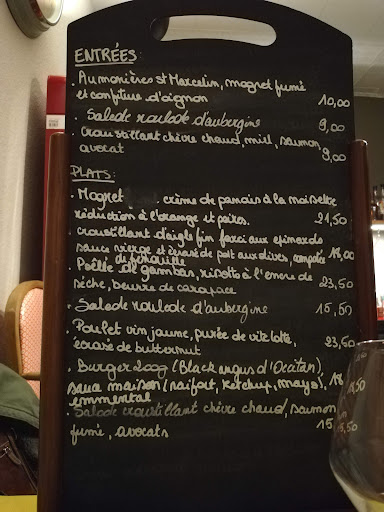 ENTRÉES:
. Aumonières st Marcelin, magret fumé
et confiture d'oignon 10,00
. Salade roulade d'aubergine 9,00
. croustillant chèvre chaud, miel, saumon,
avocat 9,00
PLATS:
. Magret crème de panais à la noisette
réduction à l'orange et poires. 21,50
. croustillant d'aigle fin farci aux epinards
sauce vierge et écrasé de pdt aux olives, compotée 18,00
de fenouille
. Poêlée de gambas, risotto à l'encre de
sèche, beurre de carapace 23,50
. Salade roulade d'aubergine 15,50
. Poulet vin jaune, purée de vitelotte,
écrasé de butternut 23,50
. Burger 200g (Black angus d'Occitan),
sauce maison (raifort, ketchup, mayo), 18
emmental
. Salade croustillant chèvre chaud, saumon
fumé, avocats 15,50